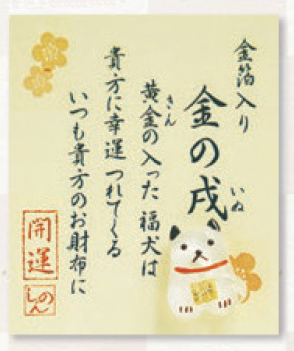 金箔入り
金の戌
いぬ
黄金の入った福犬は
きん
貴方に幸運つれてくる
いつも貴方のお財布に
開運
のん